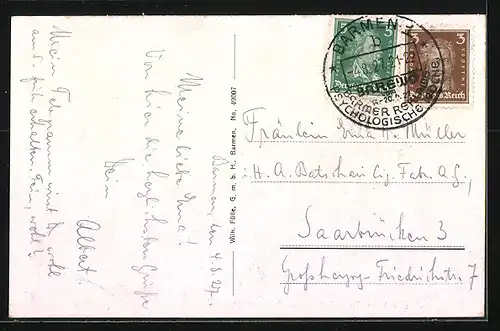 Barmen, den 4.8.27.
Meine liebe Erna!
Von hier die herzlichsten Grüße
Dein
Albert.
Mein Telegramm wirst Du wohl
erhalten
Wilh. Fülle, G. m. b. H., Barmen, No. 40007
BARMEN
BARMER
PSYCHOLOGISCHE
5
Deutsches Reich
3
3
Deutsches Reich
Fräulein Erna H. Müller
i. H. A. Batschari Cig. Fabr. A. G.,
Saarbrücken 3
Großherzog-Friedrichstr. 7